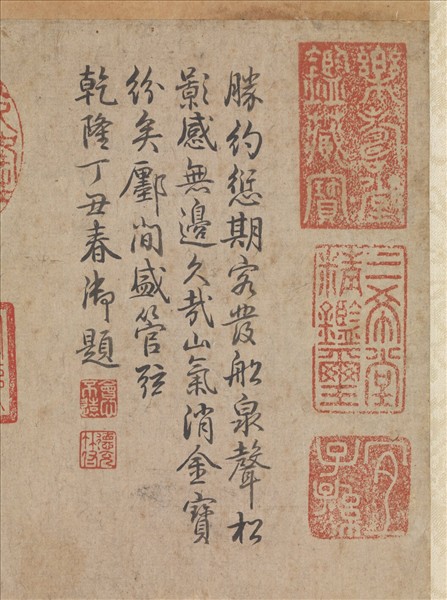 樂壽堂
鑑藏寶
三希堂
精鑑璽
宜
子孫
勝約愆期客發船泉聲松
影感無邊久哉山氣消金寶
紛矣鄽間盛管弦
乾隆丁丑春御題
會心
不遠
德充
符